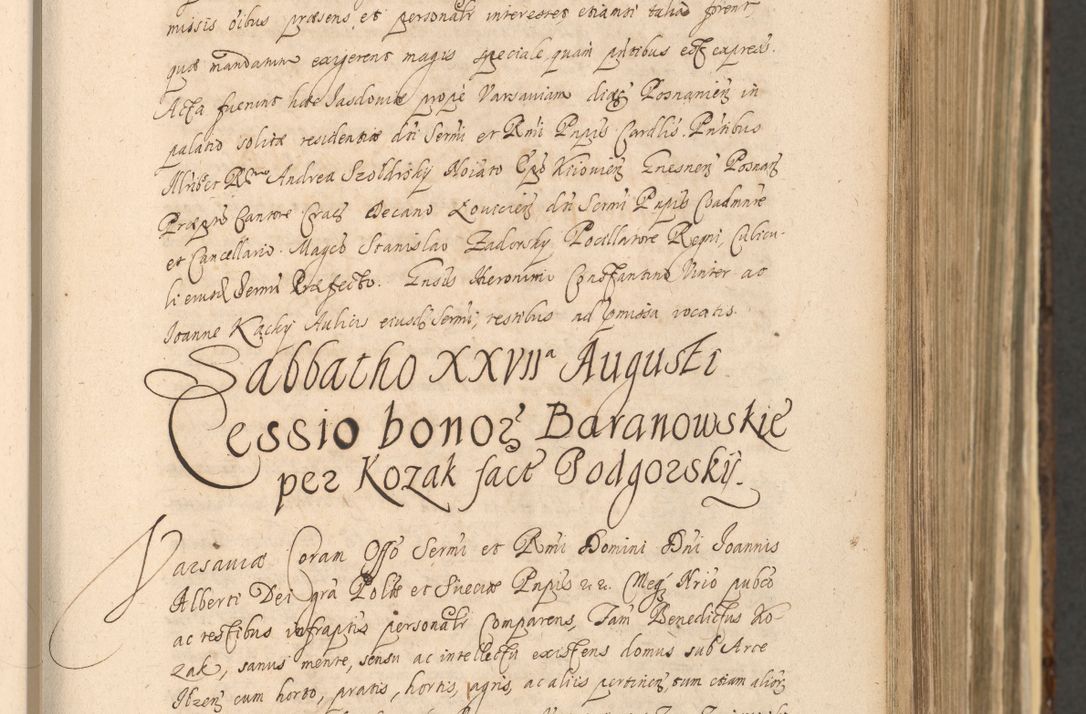 missis oibus præsens et personalr interesset etiamsi talia forent,
quæ mandatum exigerent magis speciale quam pntibus est express.
Acta fuerunt hæc Jasdoviæ prope Varsaviam diæc Posnanien in
palatio solitæ residentiæ dni Sermi et Rmi Pnpis Cardlis. Pntibus
Andrea Szoldrsky Noiato Epo Kiiovien Gnesnen Posnan
Præpto Cantore Crac Decano Lovicien dni Sermi Pnpis Coadmnre
et Cancellario. Magco Stanislao Zadorsky Pocillatore Regni, Cubicu-
li eiusd Sermi Præfecto. Gnsis Hieronimo Constantino Vinter ac
Joanne Kacky Aulicis eiusd Sermi, testibus ad pmissa vocatis.
Sabbatho XXVIIa Augusti
Cessio bonor Baranowskie
per Kozak fact Podgorskÿ.
Varsaviæ Coram Offo Sermi et Rmi Domini Dni Joannis
Alberti Dei gra Polæ et Sueciæ Pnpis etc. Meq Nrio pubco
ac testibus infraptis personalr Comparens, Fam Benedictus Ko-
zak, sanus mente, sensu ac intellectu existens domus sub Arce
Ilzen cum horto, pratis, hortis, agris, ac aliis pertinen, tum etiam alior